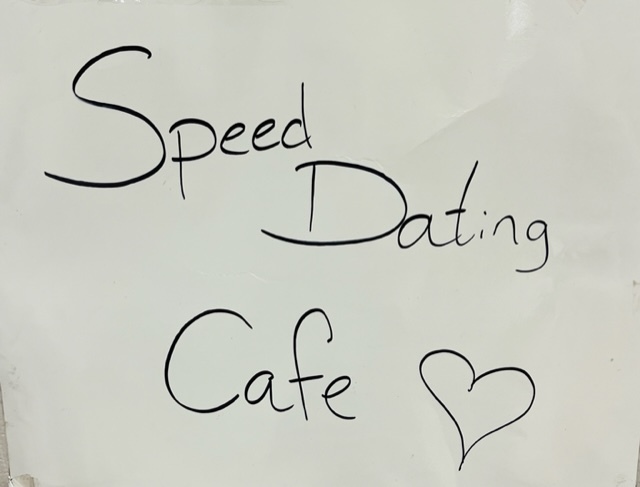 Speed
Dating
Cafe